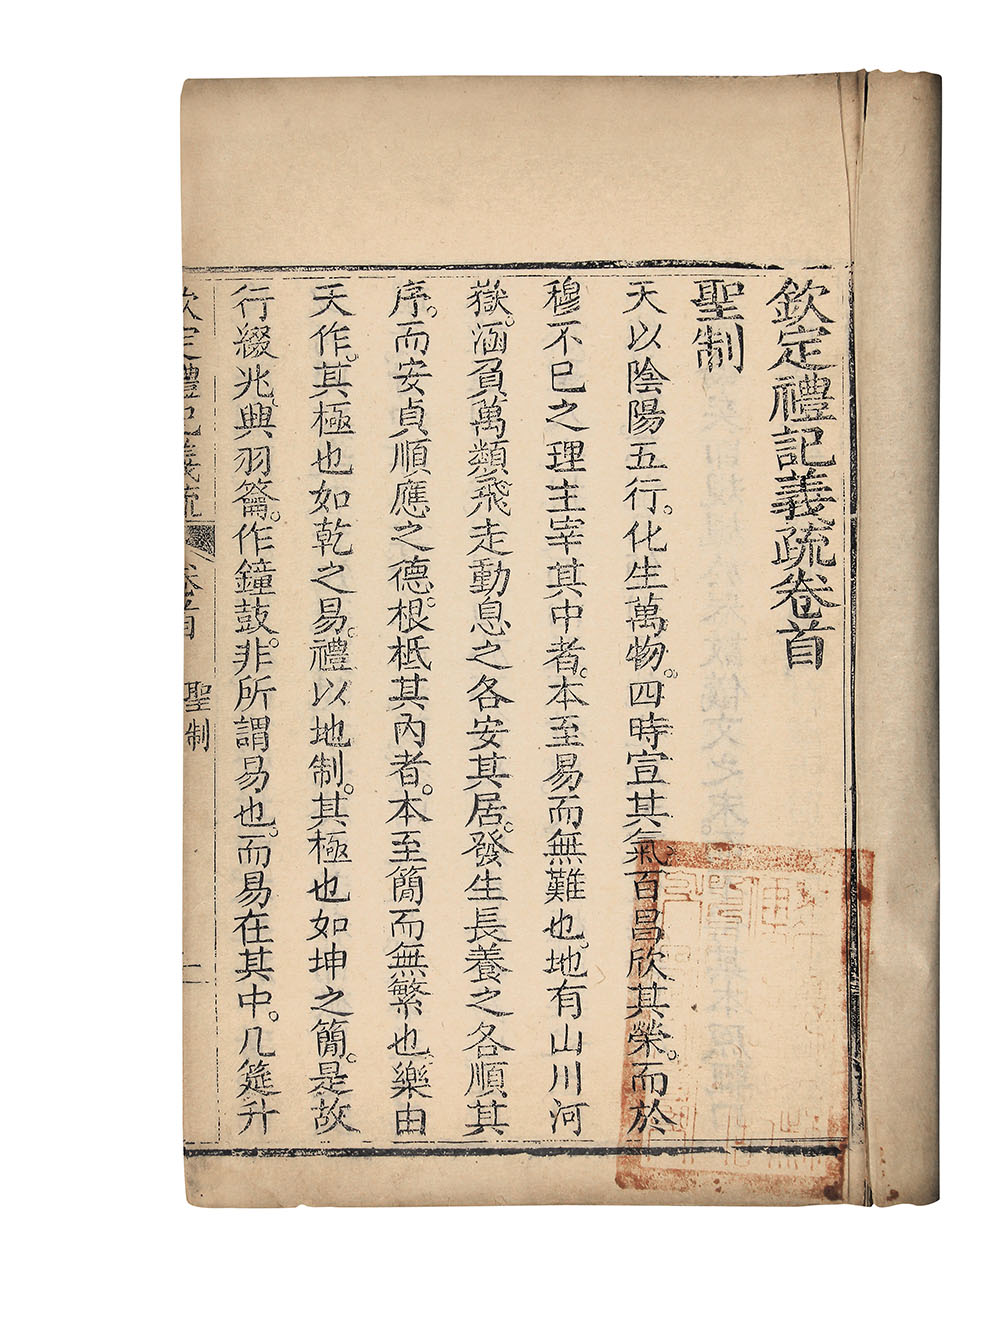 欽定禮記義疏卷首
聖制
天以陰陽五行。化生萬物。四時宣其氣。百昌欣其榮。而於
穆不已之理主宰其中者。本至易而無難也。地有山川河
嶽。涵負萬類。飛走動息之各安其居。發生長養之各順其
序。而安貞順應之德。根柢其內者。本至簡而無繁也。樂由
天作。其極也如乾之易。禮以地制。其極也如坤之簡。是故
行綴兆。興羽籥。作鐘鼓。非所謂易也。而易在其中。几筵升
欽定禮記義疏 卷首 聖制 一